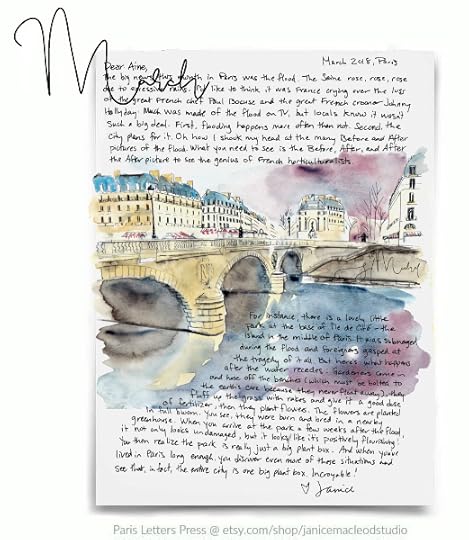 March
March 2018, Paris
Dear Aine,
The big news this month in Paris was the flood. The Seine rose, rose, rose
due to excessive rains. I'd like to think it was France crying over the loss
of the great French chef Paul Bocuse and the great French crooner Johnny
Hallyday. Much was made of the flood on TV, but locals know it wasn't
such a big deal. First, flooding happens more often than not. Second, the
city plans for it. Oh how I shook my head at the many Before and After
pictures of the flood. What you need to see is the Before, After, and After
the After picture to see the genius of French horticulturalists.
For instance, there is a lovely little
park at the base of Île de Cité - the
island in the middle of Paris. It was submerged
during the flood and foreigners gasped at
the tragedy of it all. But here's what happens
after the water recedes: Gardeners come
and hose off the benches (which must be bolted to
the earth's core because they never float away), they
fluff up the grass with rakes and give it a good dose
of fertilizer, then they plant flowers. The flowers are planted
in full bloom. You see, they were born and bred in a nearby
greenhouse. When you arrive at the park a few weeks after this flood,
it not only looks undamaged, but it looks like it's positively flourishing!
You then realize the park is really just a big plant box. And when you've
lived in Paris long enough, you discover even more of these situations and
see that, in fact, the entire city is one big plant box. Incroyable!
♡ Janice
Paris Letters Press @ etsy.com/shop/janicemacleodstudio